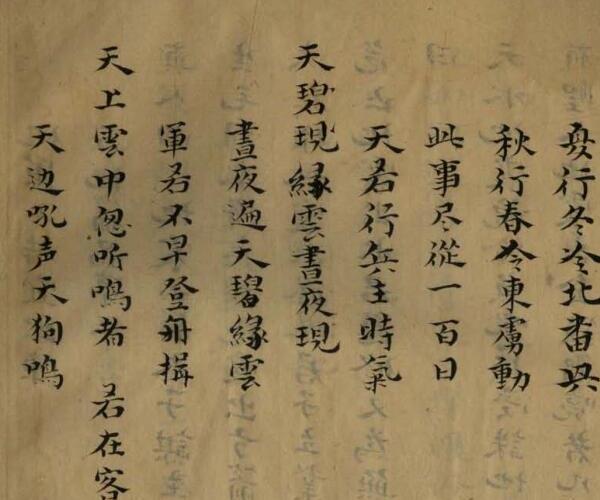 夏行冬冷北畨具
秋行春令東虜動
此事尽從一百日
天若行兵主時氣
天碧現縁雲晝夜現
晝夜遍天碧緣雲
軍若不早登舟揖
天上雲中忽听鳴者 若在客
天边吼声天狗鳴